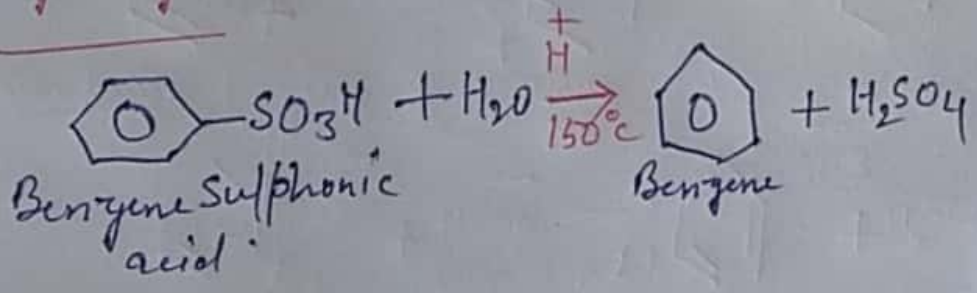 SO3H + H2O H+ 150°C → O + H2SO4
Benzene Sulphonic
acid.
Benzene